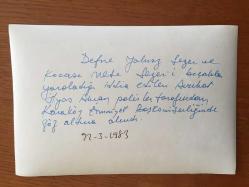 Defne Yalnız Sezer ve
Kocası Mete Sezer'i bıçakla
yaraladığı iddia edilen Avukat
İlyas polisler tarafından,
Karaköy Emniyet Başkomiserliğinde
göz altına alındı.
22-3-1983